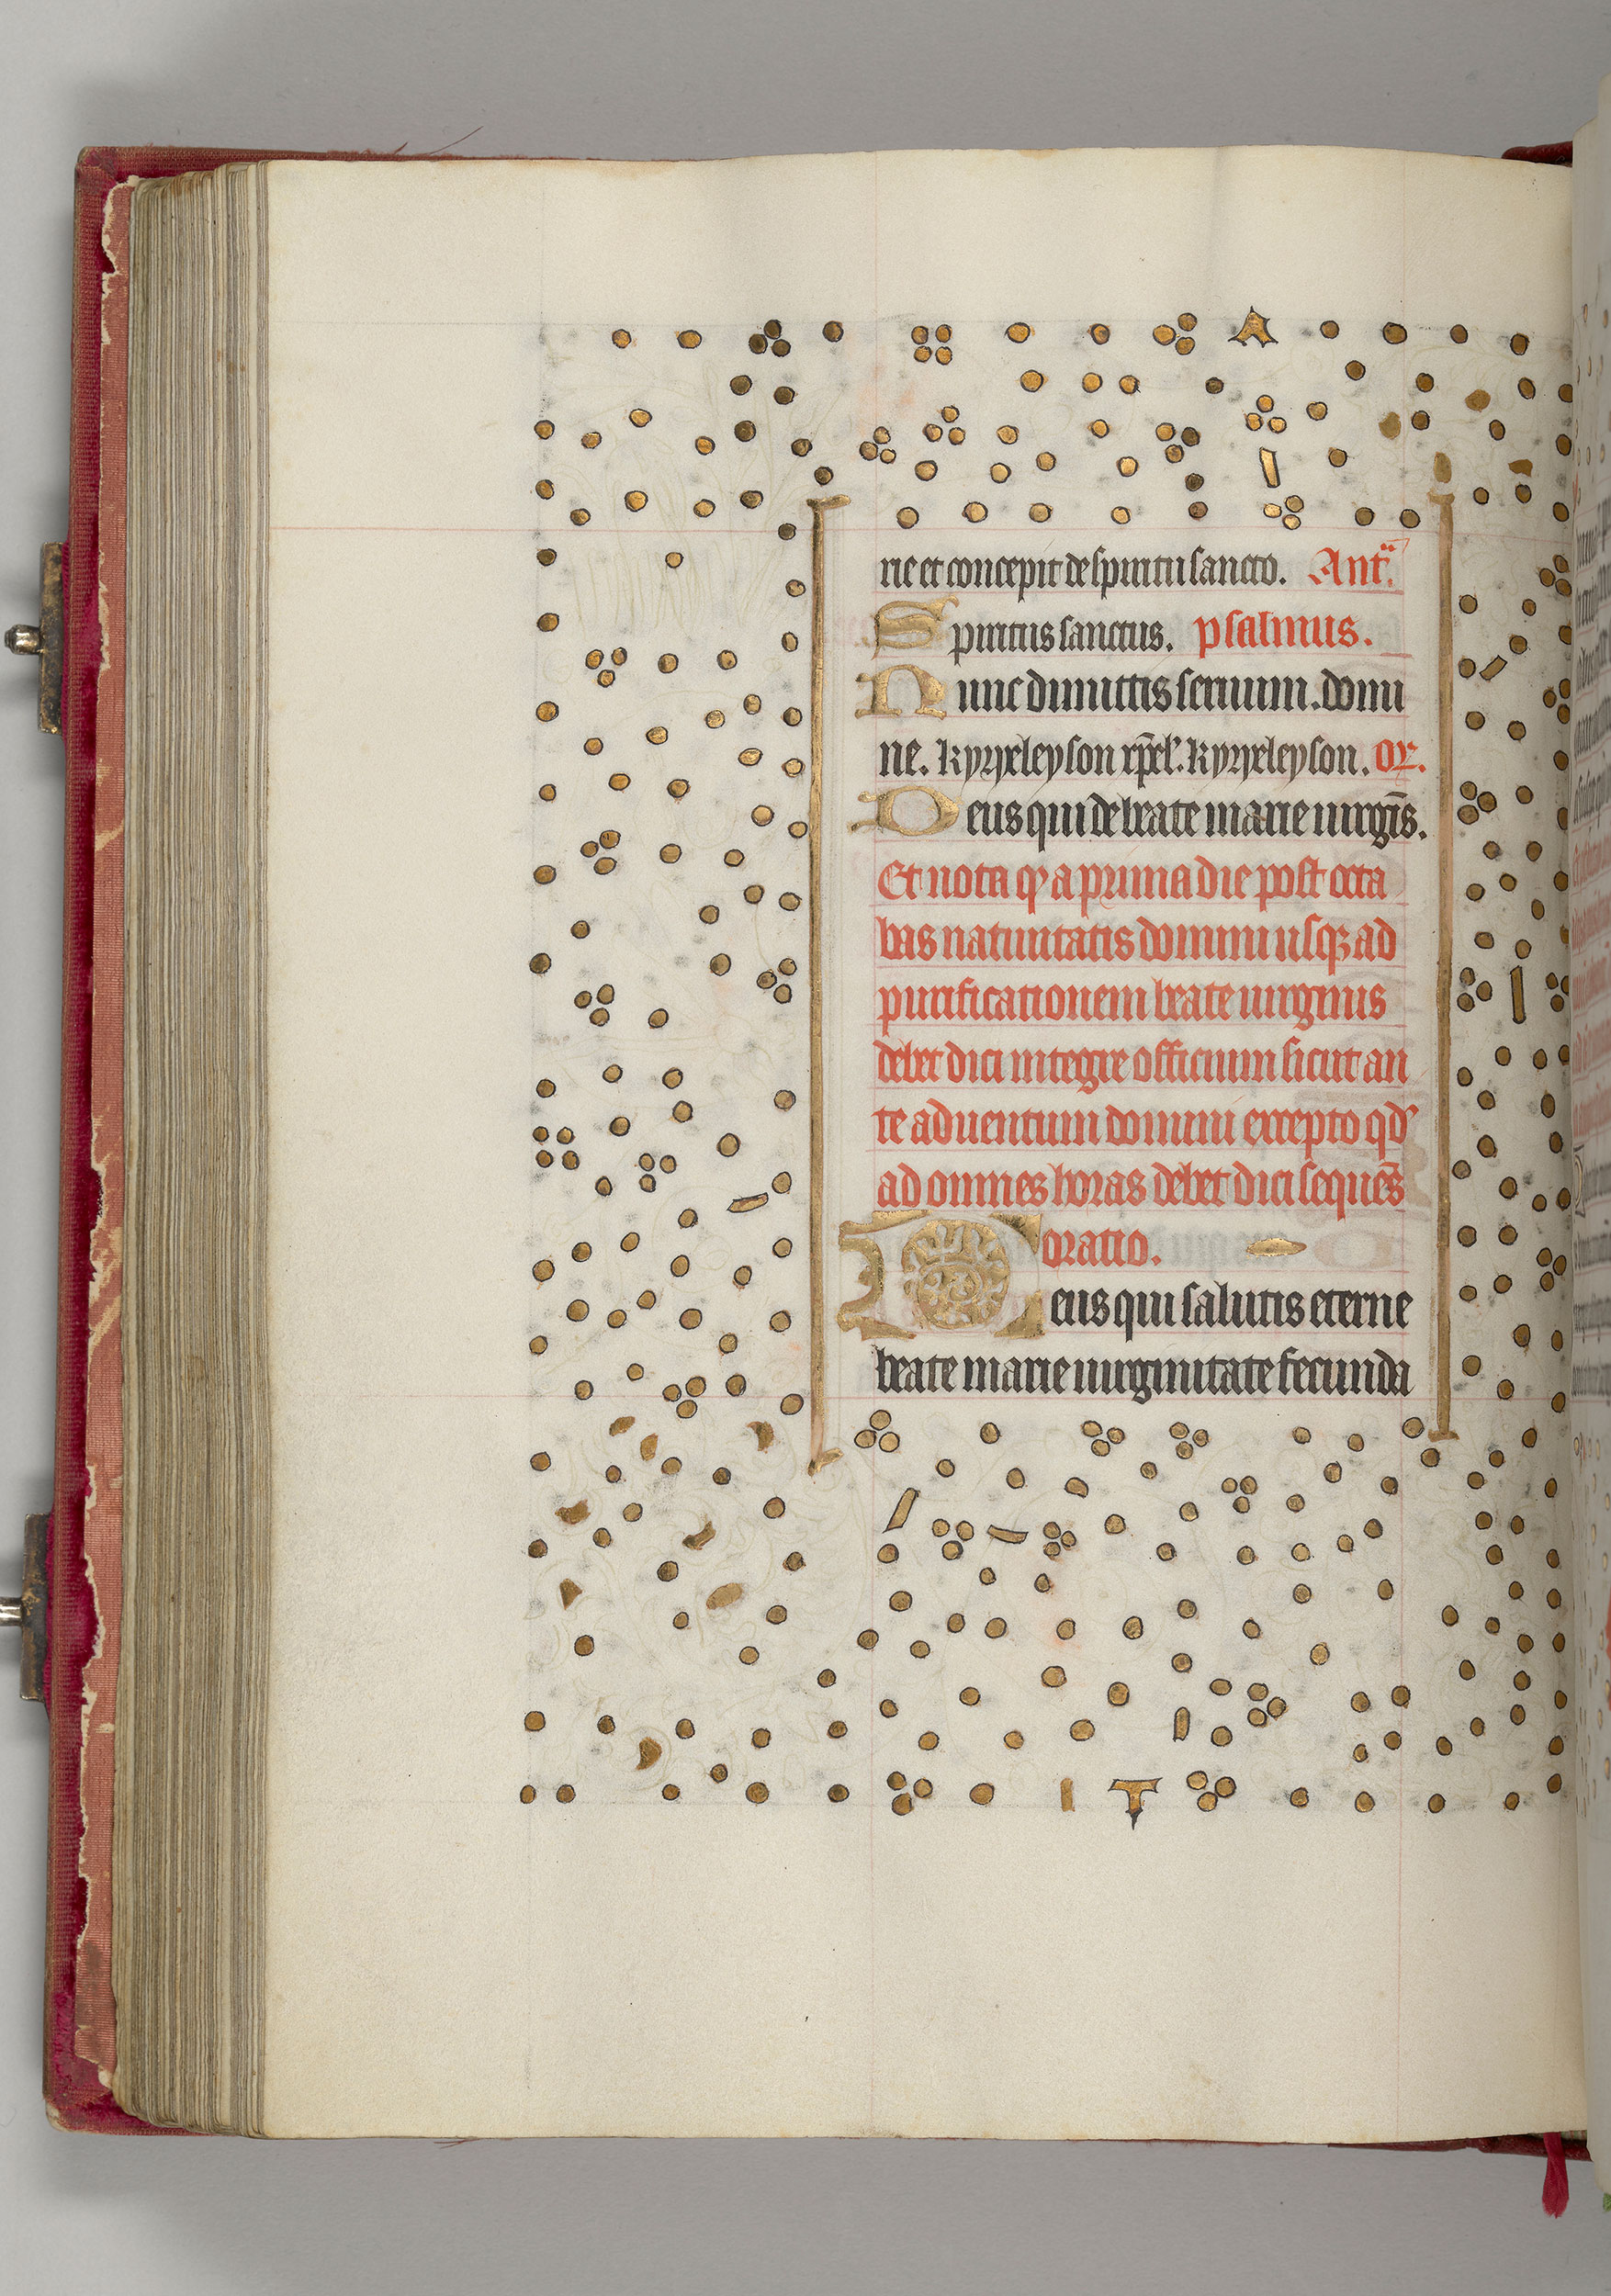 A
rie et concepit de spiritu sancto. Antᵃ.
Spiritus sanctus. psalmus.
Nunc dimittis seruum. domi
ne. kyryeleyson xp̄el'. kyryeleyson. or.
Deus qui de beate marie uirgīs.
Et nota ꝙ a prima die post octa
bas natiuitatis domini usqꝫ ad
purificationem beate uirginis
debet dici integre officium sicut an
te aduentum domini excepto qd'
ad omnes horas debet dici sequēs
oratio.
Deus qui salutis eterne
beate marie uirginitate fecunda
T